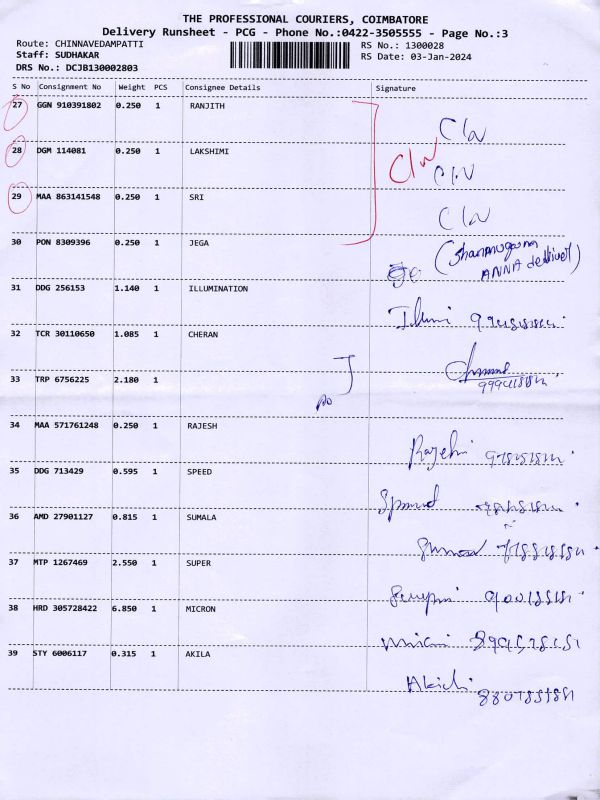 THE PROFESSIONAL COURIERS, COIMBATORE
Delivery Runsheet - PCG - Phone No.:0422-3505555 - Page No.:3
Route: CHINNAVEDAMPATTI RS No.: 1300028
Staff: SUDHAKAR RS Date: 03-Jan-2024
DRS No.: DCJB130002803
S No Consignment No Weight PCS Consignee Details Signature
27 GGN 910391802 0.250 1 RANJITH
C/W
28 DGM 114081 0.250 1 LAKSHIMI
C/W C/W
29 MAA 863141548 0.250 1 SRI
C/W
30 PON 8309396 0.250 1 JEGA
ANNA
31 DDG 256153 1.140 1 ILLUMINATION
32 TCR 30110650 1.085 1 CHERAN
33 TRP 6756225 2.180 1
34 MAA 571761248 0.250 1 RAJESH
35 DDG 713429 0.595 1 SPEED
36 AMD 27901127 0.815 1 SUMALA
37 MTP 1267469 2.550 1 SUPER
38 HRD 305728422 6.850 1 MICRON
39 STY 6006117 0.315 1 AKILA